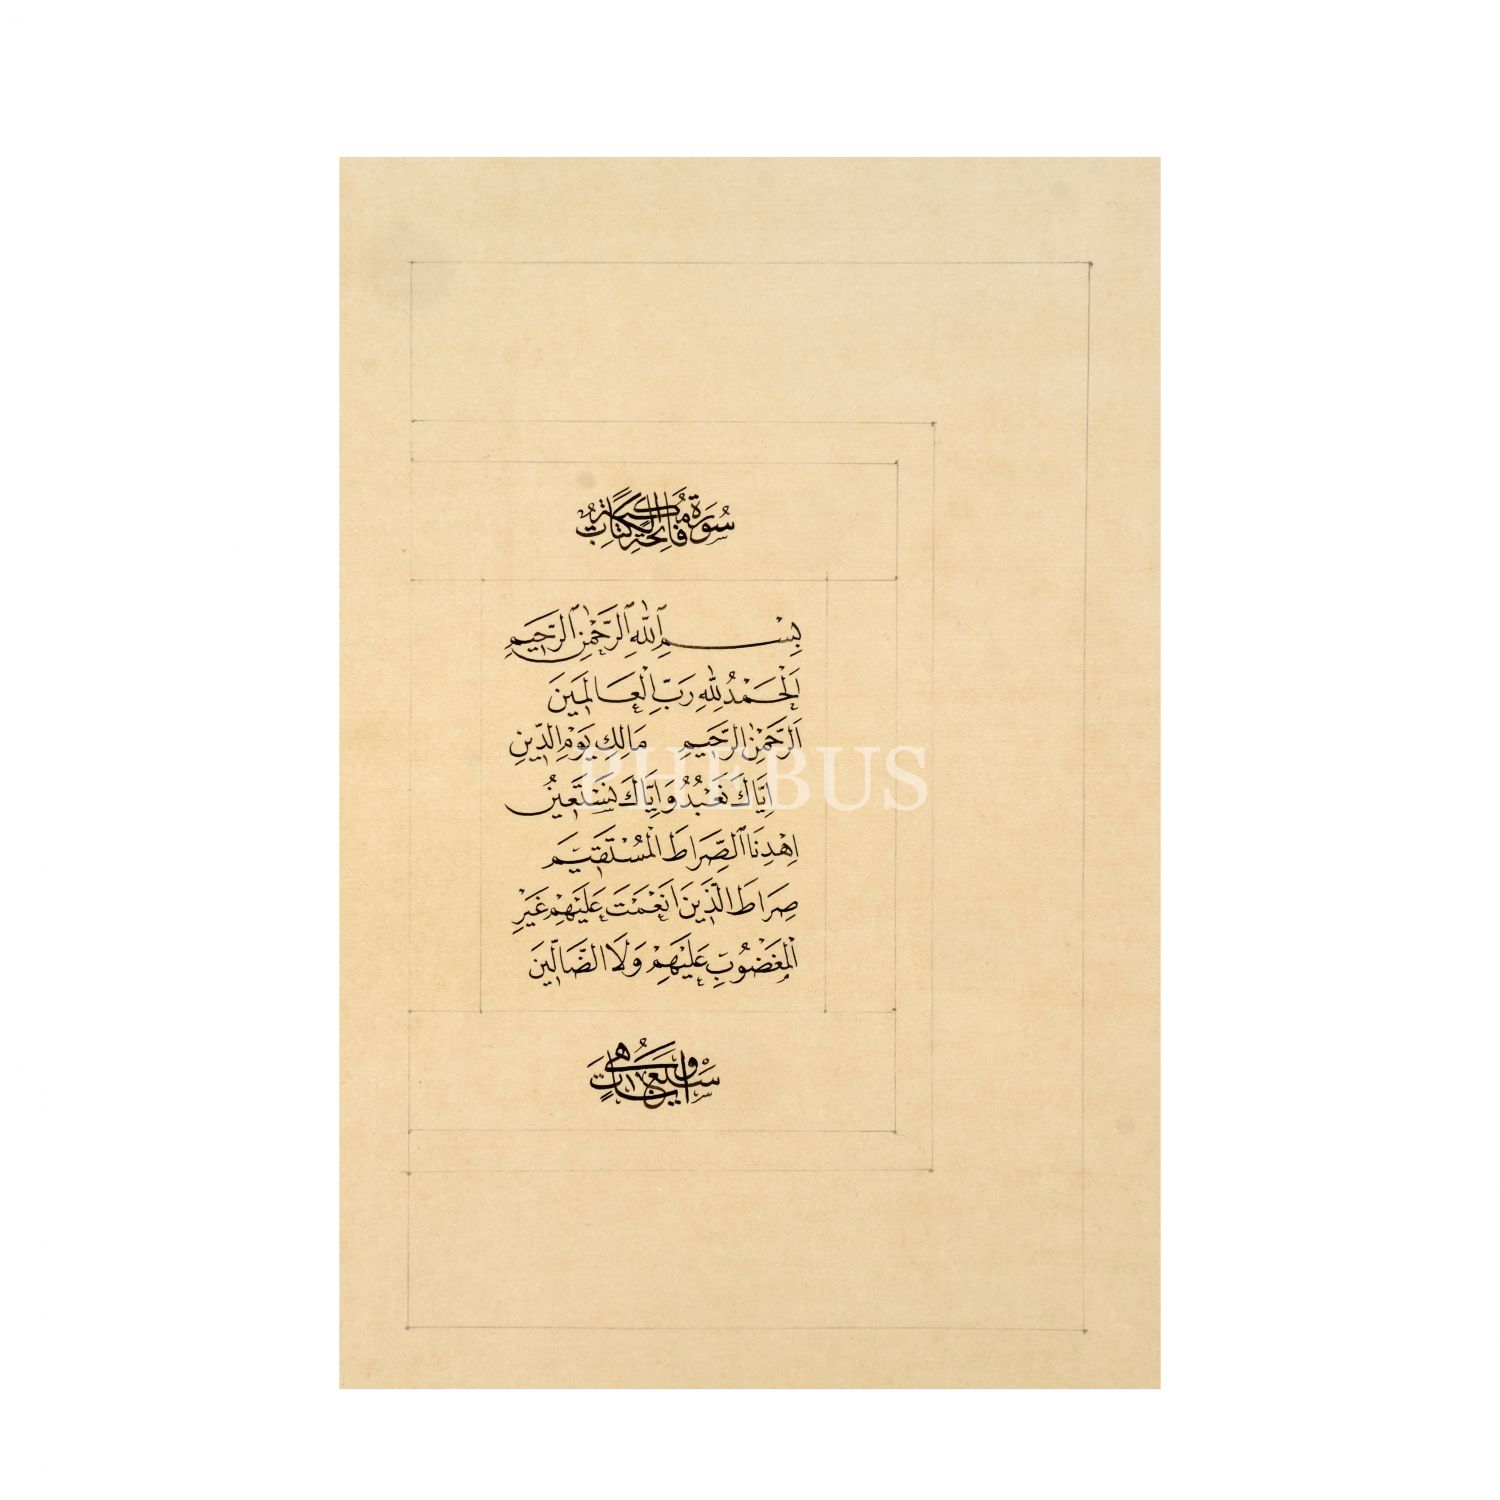 سُورَةُ فَاتِحَةِ الْكِتَابِ مَكِّيَّةٌ
بِسْمِ ٱللّٰهِ ٱلرَّحْمٰنِ ٱلرَّحِيمِ
اَلْحَمْدُ لِلّٰهِ رَبِّ الْعَالَمِينَ
اَلرَّحْمٰنِ الرَّحِيمِ مَالِكِ يَوْمِ الدِّينِ
اِيَّاكَ نَعْبُدُ وَاِيَّاكَ نَسْتَعِينُ
اِهْدِنَا ٱلصِّرَاطَ الْمُسْتَقِيمَ
صِرَاطَ الَّذِينَ اَنْعَمْتَ عَلَيْهِمْ غَيْرِ
الْمَغْضُوبِ عَلَيْهِمْ وَلَا الضَّالِّينَ
وَهِيَ سَبْعُ اٰيَاتٍ
PHEBUS